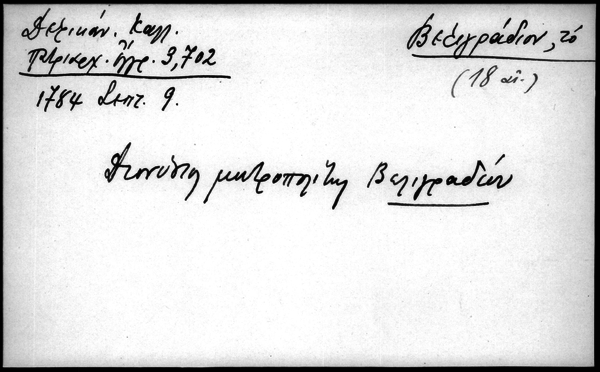 Δελικάν. Καλ.
Πατριαρχ. ἔγγρ. 3,702
1784 Σεπτ. 9.
Βελιγράδιον, τό
(18 αἰ.)
Διονύσιος μητροπολίτης Βελιγραδίων